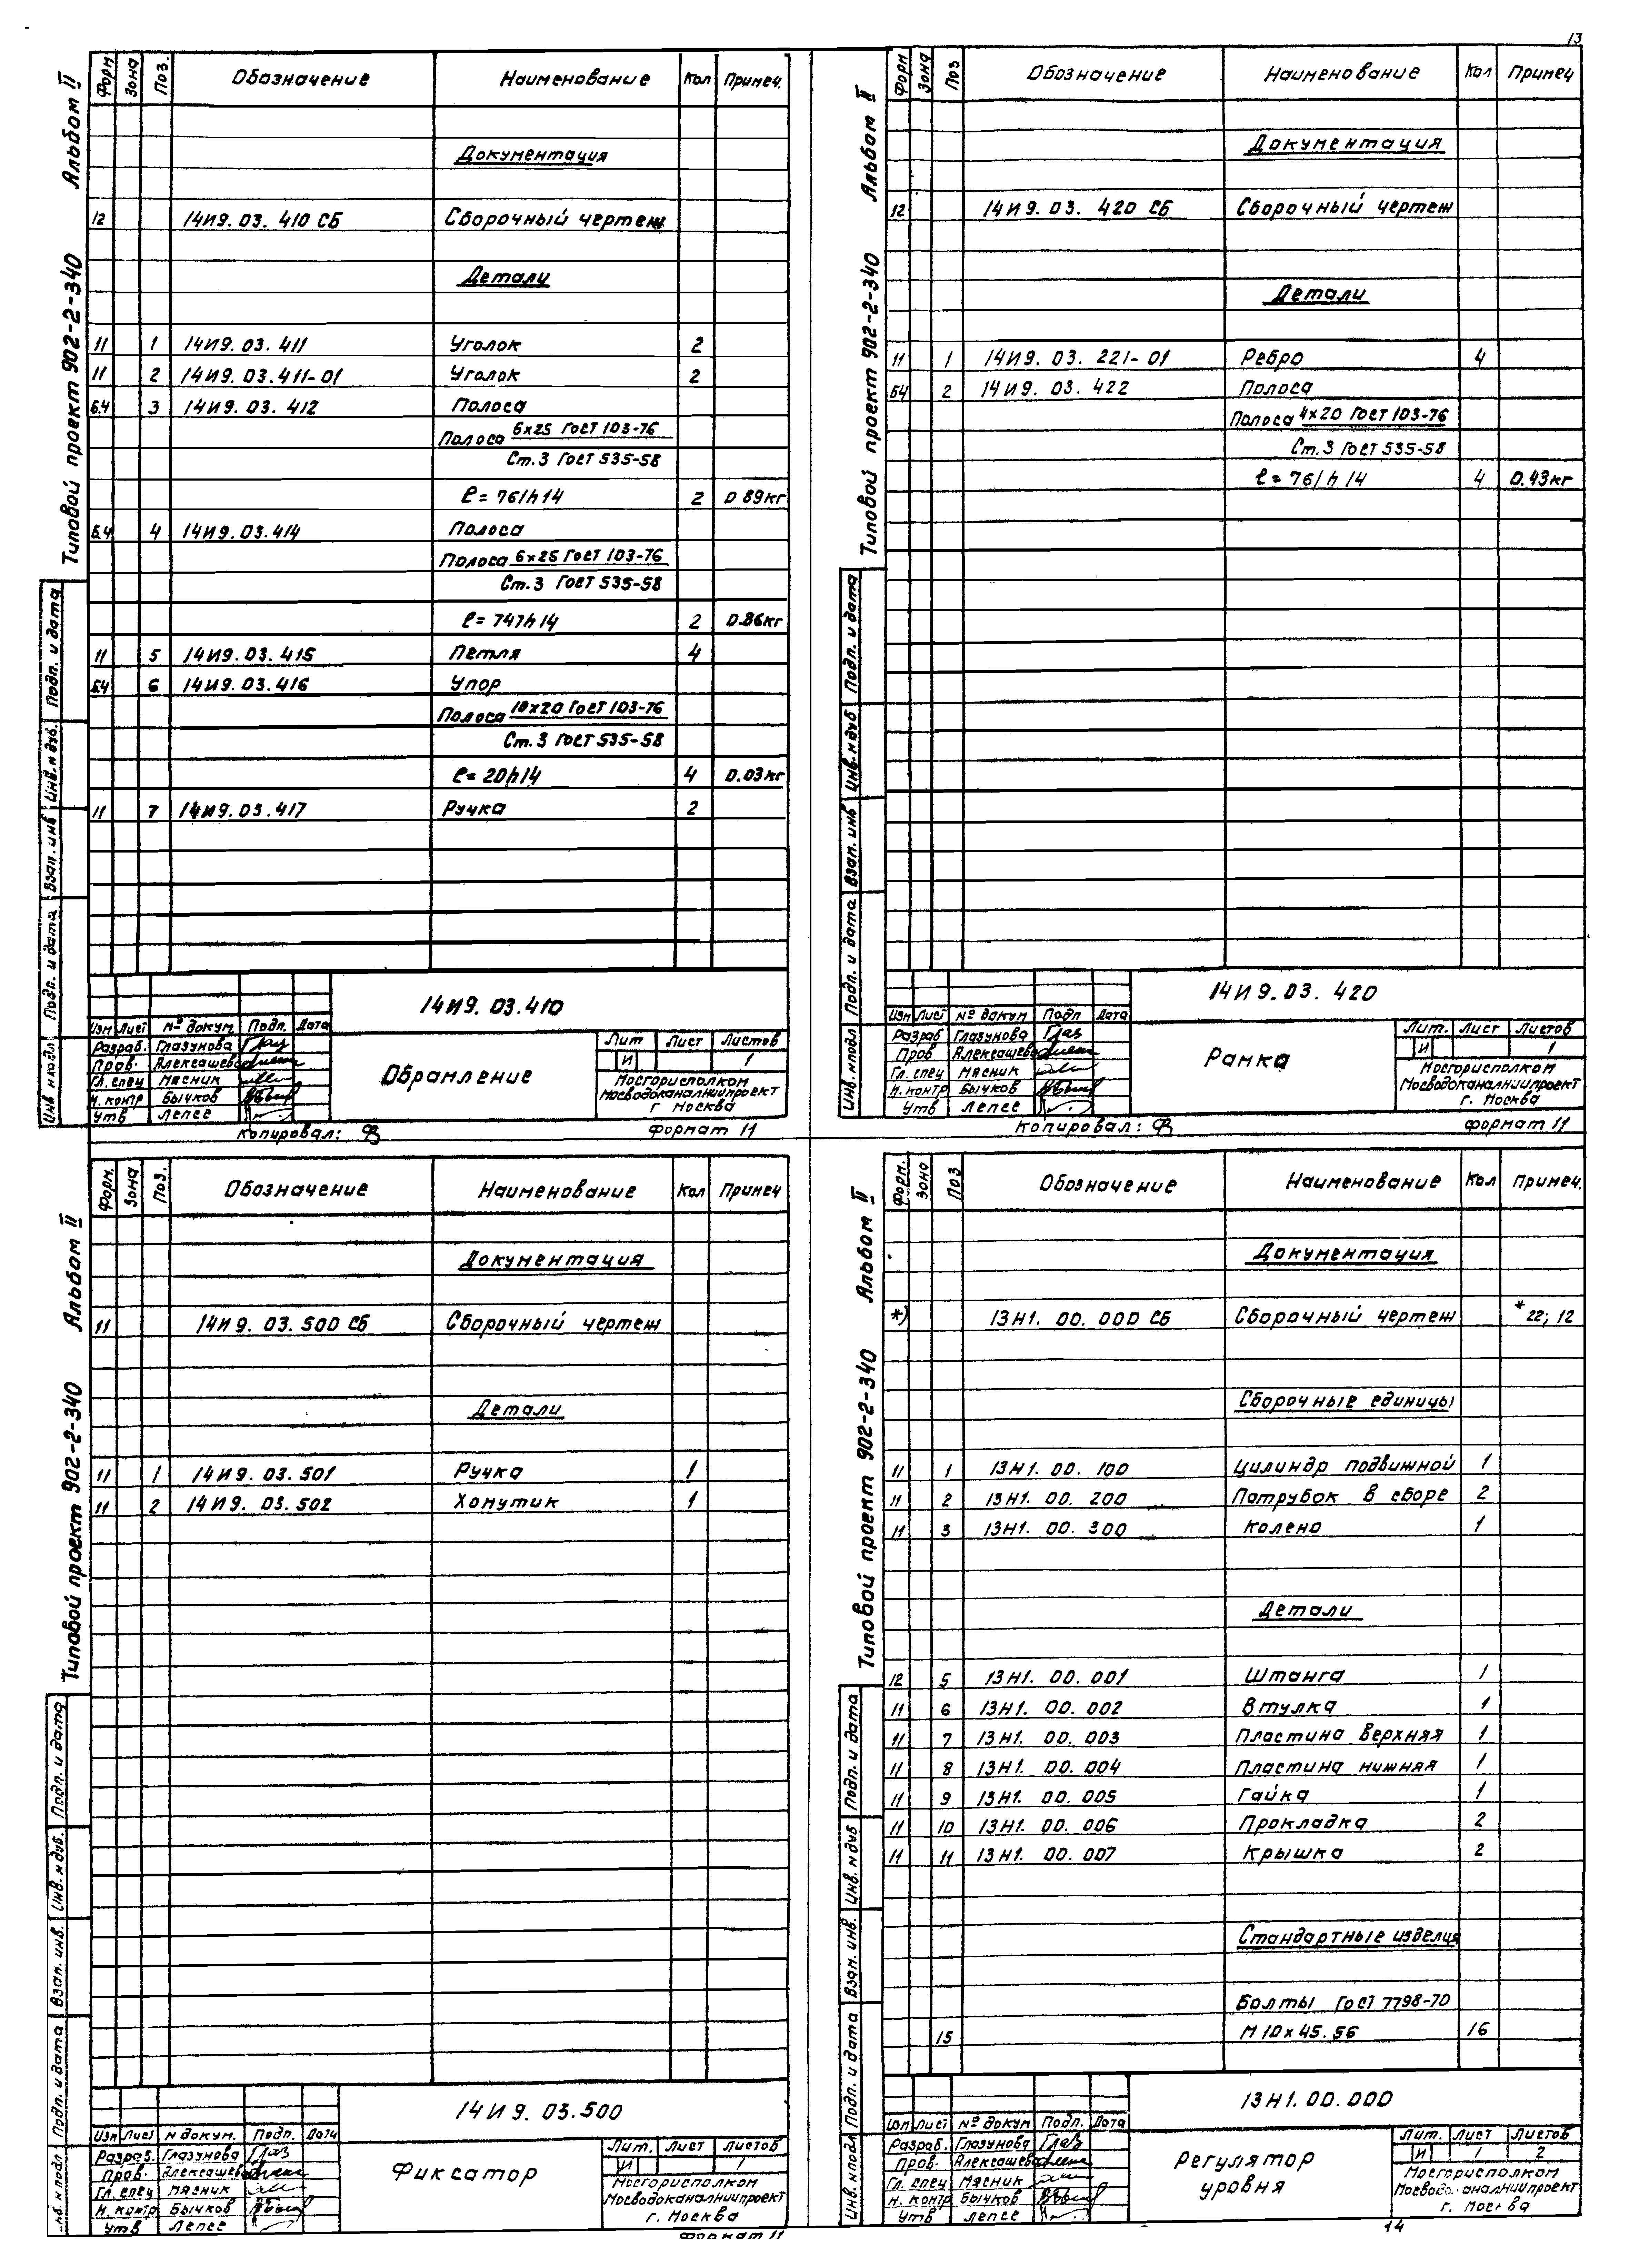 13
Типовой проект 902-2-340 Альбом II
Форм Зона Поз. Обозначение Наименование Кол Примеч.
Документация
12 14И9.03.410 СБ Сборочный чертеж
Детали
11 1 14И9.03.411 Уголок 2
11 2 14И9.03.411-01 Уголок 2
Б.4 3 14И9.03.412 Полоса
Полоса 6х25 ГОСТ 103-76
Ст.3 ГОСТ 535-58
ℓ=761h14 2 0.89кг
Б.4 4 14И9.03.414 Полоса
Полоса 6х25 ГОСТ 103-76
Ст.3 ГОСТ 535-58
ℓ=747h14 2 0.86кг
11 5 14И9.03.415 Петля 4
Б4 6 14И9.03.416 Упор
Полоса 10х20 ГОСТ 103-76
Ст.3 ГОСТ 535-58
ℓ=20h14 4 0.03кг
11 7 14И9.03.417 Ручка 2
Инв. н подл Подп. и дата Взап. инв Инв. н дуб. Подп. и дата
14И9.03.410
Изм Лист Nº докум Подп. Дата
Разраб. Глазунова
Пров. Алексашева
Гл. спец Мясник
Н. контр Бычков
Утв Лепее
Обрамление
Лит Лист Листов
И 1
Мосгорисполком
Мосводоканалниипроект
г. Москва
Копировал: Формат 11
Типовой проект 902-2-340 Альбом II
Форм Зона Поз Обозначение Наименование Кол Примеч
Документация
12 14И9.03.420 СБ Сборочный чертеж
Детали
11 1 14И9.03.221-01 Ребро 4
Б4 2 14И9.03.422 Полоса
Полоса 4х20 ГОСТ 103-76
Ст.3 ГОСТ 535-58
ℓ=761h14 4 0.43кг
Инв. н подл Подп. и дата Взап. инв Инв. н дуб Подп. и дата
14И9.03.420
Изм Лист Nº докум Подп Дата
Разраб Глазунова
Пров Алексашева
Гл. спец Мясник
Н. контр Бычков
Утв Лепее
Рамка
Лит. Лист Листов
И 1
Мосгорисполком
Мосводоканалниипроект
г. Москва
Копировал: Формат 11
Типовой проект 902-2-340 Альбом II
Форм. Зона Поз. Обозначение Наименование Кол Примеч
Документация
11 14И9.03.500 СБ Сборочный чертеж
Детали
11 1 14И9.03.501 Ручка 1
11 2 14И9.03.502 Хомутик 1
Инв. н подл Подп. и дата Взап. инв. Инв. н дуб. Подп. и дата
14И9.03.500
Изм Лист N докум. Подп. Дата
Разраб. Глазунова
Пров. Алексашева
Гл. спец Мясник
Н. контр Бычков
Утв Лепее
Фиксатор
Лит. Лист Листов
И 1
Мосгорисполком
Мосводоканалниипроект
г. Москва
Формат 11
Типовой проект 902-2-340 Альбом II
Форм. Зона Поз Обозначение Наименование Кол Примеч.
Документация
*) 13Н1.00.000 СБ Сборочный чертеж *22; 12
Сборочные единицы
11 1 13Н1.00.100 Цилиндр подвижной 1
11 2 13Н1.00.200 Патрубок в сборе 2
11 3 13Н1.00.300 Колено 1
Детали
12 5 13Н1.00.001 Штанга 1
11 6 13Н1.00.002 Втулка 1
11 7 13Н1.00.003 Пластина верхняя 1
11 8 13Н1.00.004 Пластина нижняя 1
11 9 13Н1.00.005 Гайка 1
11 10 13Н1.00.006 Прокладка 2
11 11 13Н1.00.007 Крышка 2
Стандартные изделия
Болты ГОСТ 7798-70
15 М10х45.56 16
Инв. н подл Подп. и дата Взам. инв. Инв. н дуб Подп. и дата
13Н1.00.000
Изм Лист Nº докум Подп. Дата
Разраб. Глазунова
Пров. Алексашева
Гл. спец Мясник
Н. контр Бычков
Утв Лепее
Регулятор
уровня
Лит. Лист Листов
И 1 2
Мосгорисполком
Мосводоканалниипроект
г. Москва
14